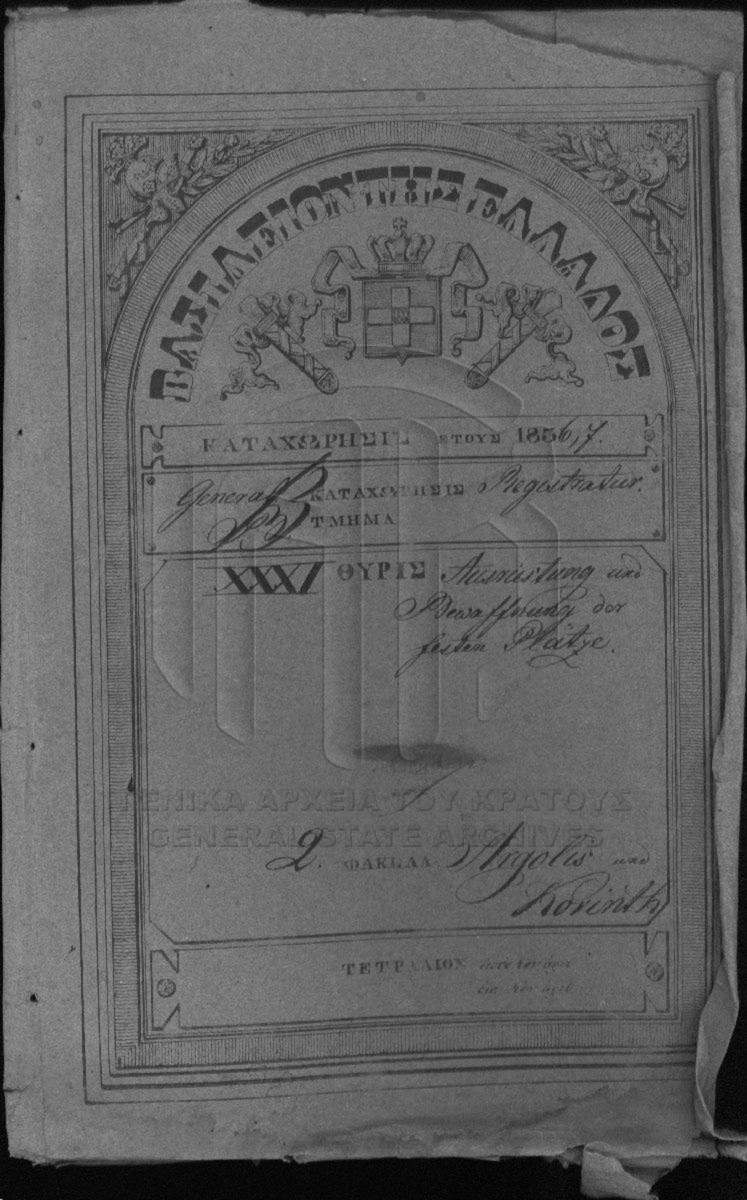 ΒΑΣΙΛΕΙΟΝ ΤΗΣ ΕΛΛΑΔΟΣ
ΚΑΤΑΧΩΡΗΣΙΣ ΕΤΟΥΣ 1836,7.
General ΚΑΤΑΧΩΡΗΣΙΣ Registratur.
ΤΜΗΜΑ
XXXI ΘΥΡΙΣ Ausrüstung und
Bewaffnung der
festen Plätze.
ΓΕΝΙΚΑ ΑΡΧΕΙΑ ΤΟΥ ΚΡΑΤΟΥΣ
GENERAL STATE ARCHIVES
2. ΦΑΚΕΛΛ. Argolis und
Korinth
ΤΕΤΡΑΔΙΟΝ